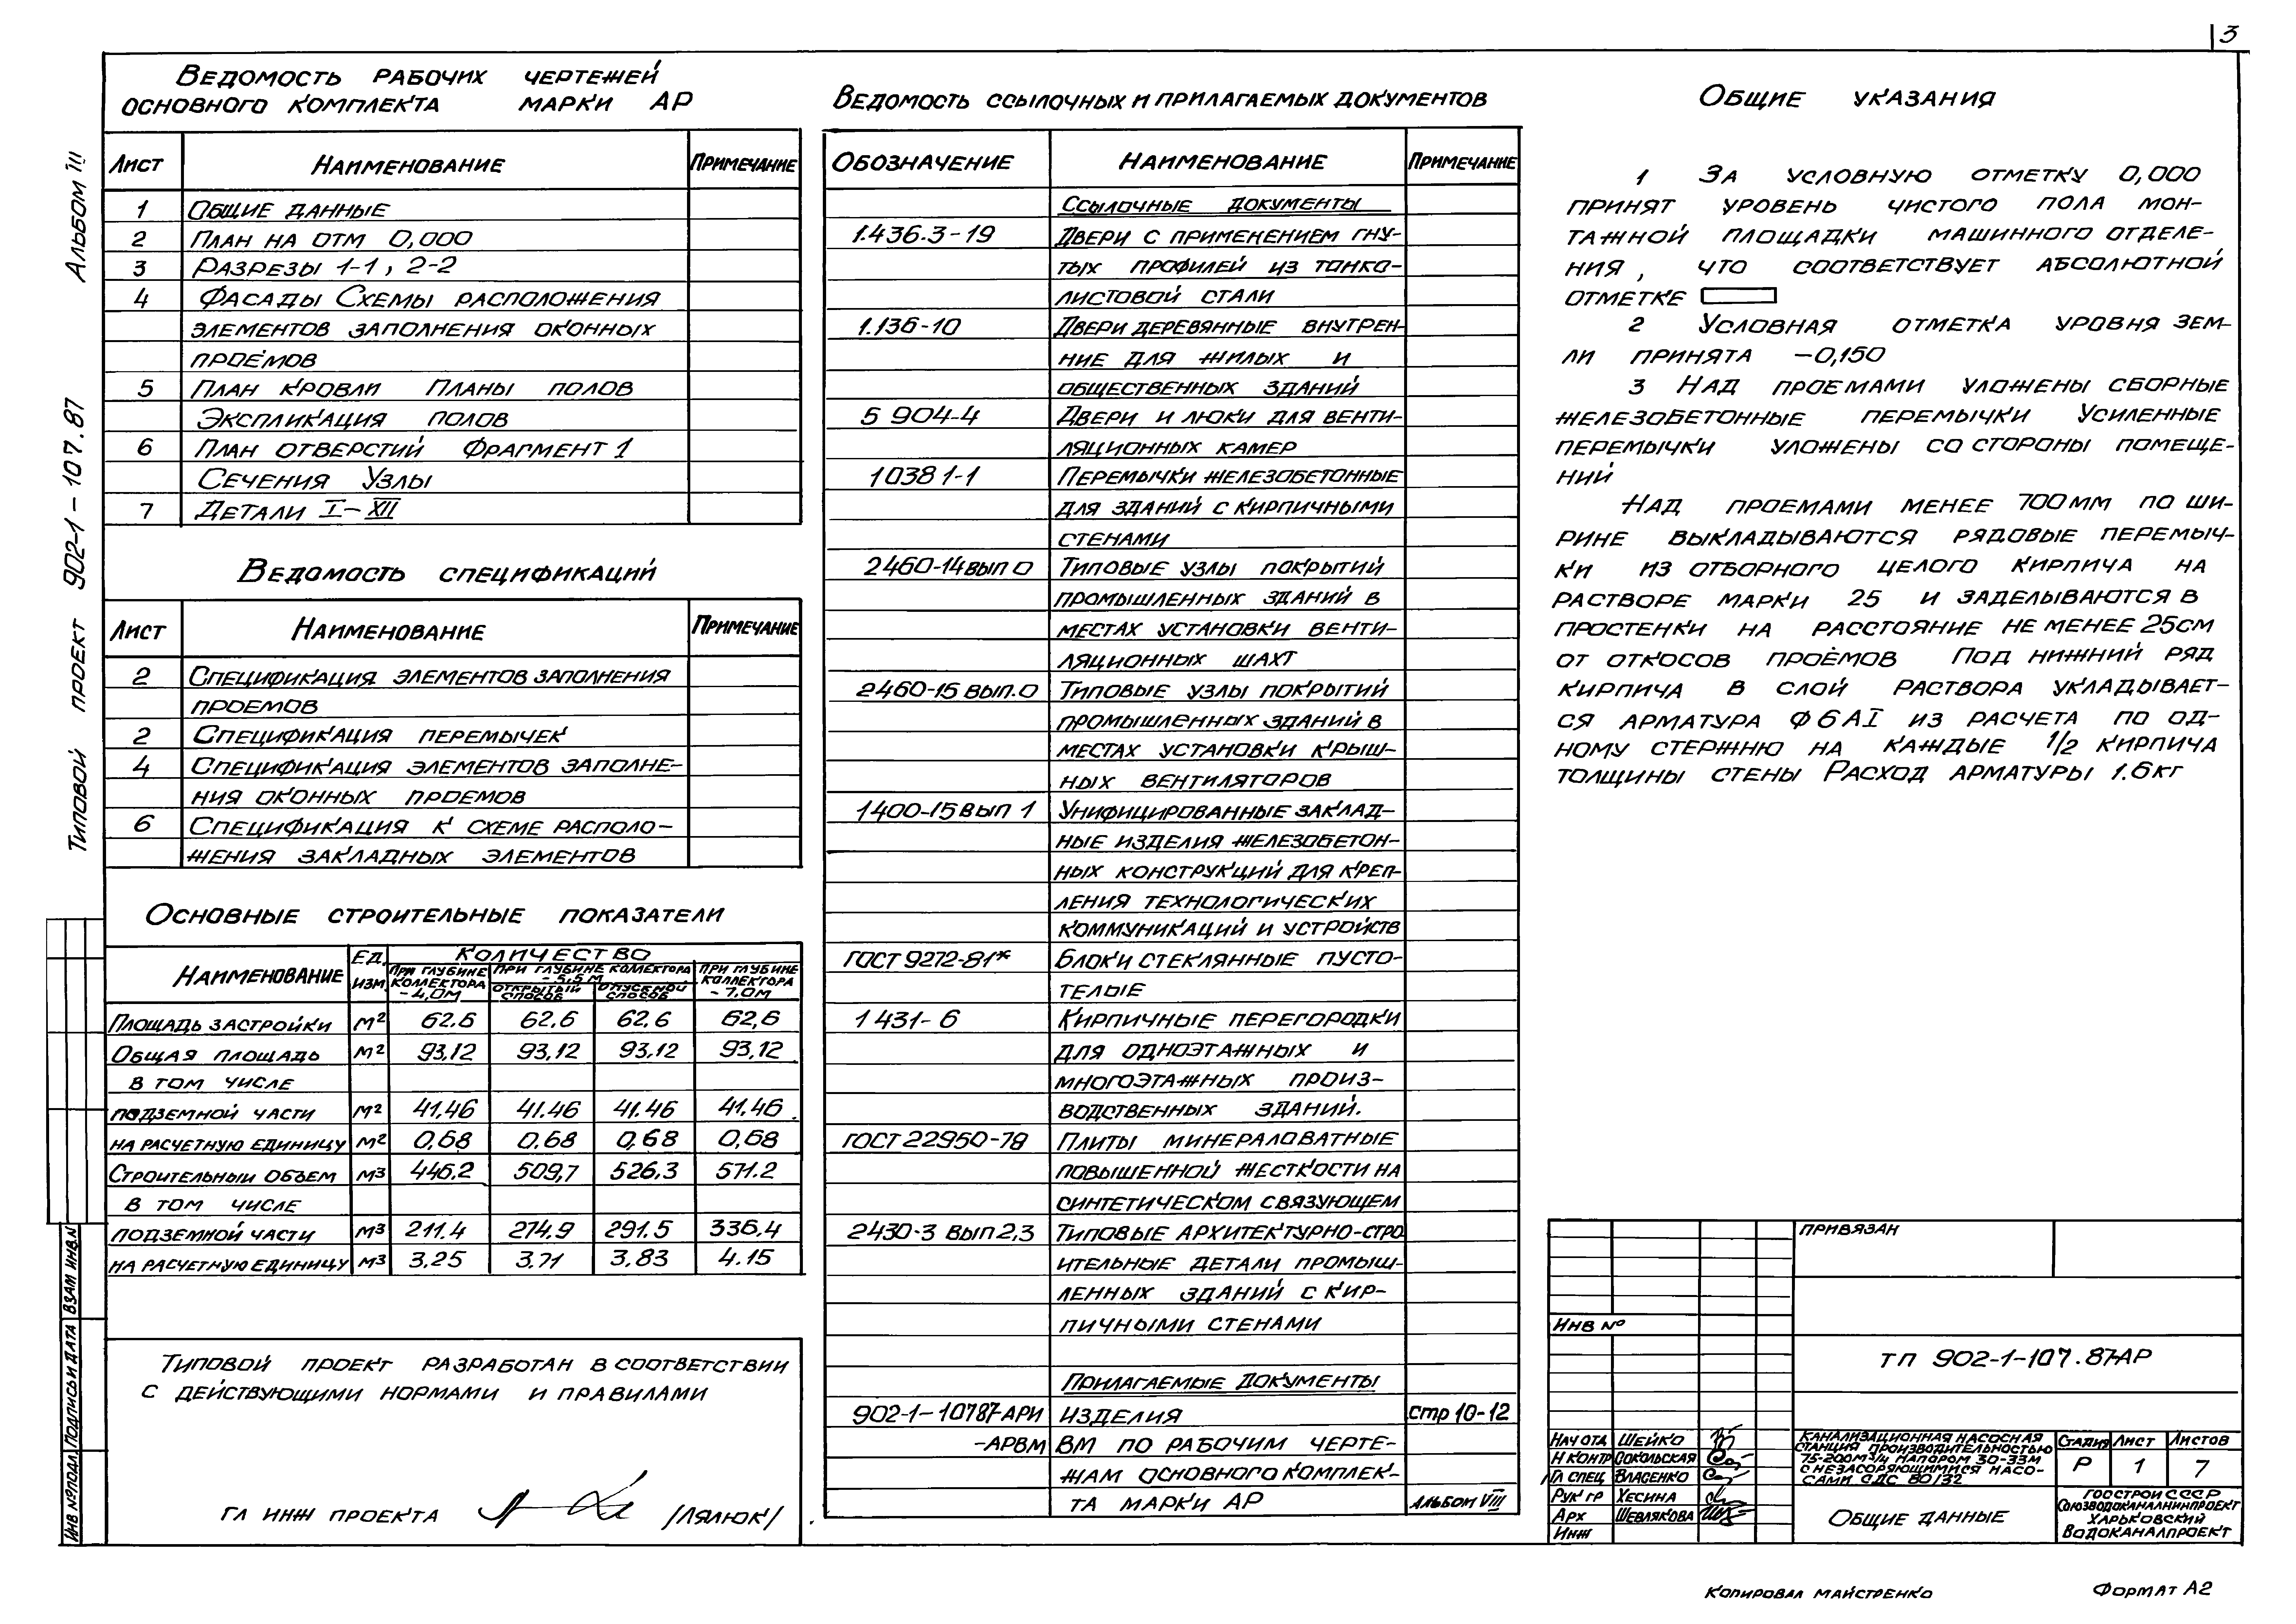 3
Альбом III
Типовой проект 902-1-107.87
Ведомость рабочих чертежей
основного комплекта марки АР
Лист Наименование Примечание
1 Общие данные
2 План на отм 0,000
3 Разрезы 1-1, 2-2
4 Фасады Схемы расположения
элементов заполнения оконных
проёмов
5 План кровли Планы полов
Экспликация полов
6 План отверстий Фрагмент 1
Сечения Узлы
7 Детали I-XII
Ведомость спецификаций
Лист Наименование Примечание
2 Спецификация элементов заполнения
проемов
2 Спецификация перемычек
4 Спецификация элементов заполне-
ния оконных проемов
6 Спецификация к схеме располо-
жения закладных элементов
Основные строительные показатели
Наименование Ед. изм. Количество
при глубине коллектора -4,0м
при глубине коллектора -5,5м
открытый способ
опускной способ
при глубине коллектора -7,0м
Площадь застройки м² 62.6 62,6 62,6 62,6
Общая площадь м² 93,12 93,12 93,12 93,12
в том числе
подземной части м² 41.46 41.46 41.46 41.46
на расчетную единицу м² 0,68 0,68 0,68 0,68
Строительный объем м³ 446,2 509,7 526,3 571.2
в том числе
подземной части м³ 211.4 274,9 291.5 336,4
на расчетную единицу м³ 3.25 3.71 3.83 4.15
Типовой проект разработан в соответствии
с действующими нормами и правилами
Гл инж проекта /Лялюк/
Ведомость ссылочных и прилагаемых документов
Обозначение Наименование Примечание
Ссылочные документы
1.436.3-19 Двери с применением гну-
тых профилей из тонко-
листовой стали
1.136-10 Двери деревянные внутрен-
ние для жилых и
общественных зданий
5 904-4 Двери и люки для венти-
ляционных камер
1038 1-1 Перемычки железобетонные
для зданий с кирпичными
стенами
2460-14 вып 0 Типовые узлы покрытий
промышленных зданий в
местах установки венти-
ляционных шахт
2460-15 вып.0 Типовые узлы покрытий
промышленных зданий в
местах установки крыш-
ных вентиляторов
1400-15 вып 1 Унифицированные заклад-
ные изделия железобетон-
ных конструкций для креп-
ления технологических
коммуникаций и устройств
ГОСТ 9272-81* Блоки стеклянные пусто-
телые
1 431-6 Кирпичные перегородки
для одноэтажных и
многоэтажных произ-
водственных зданий.
ГОСТ 22950-78 Плиты минераловатные
повышенной жесткости на
синтетическом связующем
2430-3 вып 2,3 Типовые архитектурно-стро
ительные детали промыш-
ленных зданий с кир-
пичными стенами
Прилагаемые документы
902-1-10787-АРИ Изделия стр 10-12
-АРВМ ВМ по рабочим черте-
жам основного комплек-
та марки АР Альбом VIII
Общие указания
1 За условную отметку 0,000
принят уровень чистого пола мон-
тажной площадки машинного отделе-
ния, что соответствует абсолютной
отметке
2 Условная отметка уровня зем-
ли принята -0,150
3 Над проемами уложены сборные
железобетонные перемычки Усиленные
перемычки уложены со стороны помеще-
ний
Над проемами менее 700мм по ши-
рине выкладываются рядовые перемыч-
ки из отборного целого кирпича на
растворе марки 25 и заделываются в
простенки на расстояние не менее 25см
от откосов проёмов Под нижний ряд
кирпича в слой раствора укладывает-
ся арматура Ф6АI из расчета по од-
ному стержню на каждые 1/2 кирпича
толщины стены Расход арматуры 1.6кг
Привязан
Инв №
ТП 902-1-107.87-АР
Нач ота Шейко
Н контр Сокольская
Гл спец Власенко
Рук гр Хесина
Арх Шевлякова
Инж
Канализационная насосная
станция производительностью
75-200м³/ч напором 30-33м
с незасоряющимися насо-
сами СДС 80/32
Стадия Лист Листов
Р 1 7
Общие данные
Госстрой СССР
Союзводоканалниипроект
Харьковский
Водоканалпроект
Инв № подл. Подпись и дата Взам инв. N
Копировал Майстренко
Формат А2